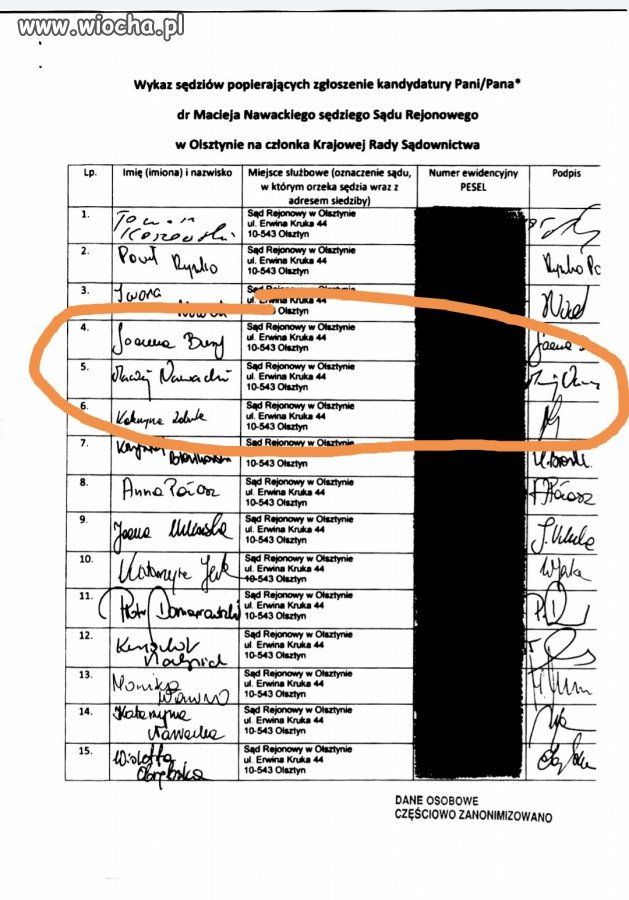 www.wiocha.pl
Wykaz sędziów popierających zgłoszenie kandydatury Pani/Pana*
dr Macieja Nawackiego sędziego Sądu Rejonowego
w Olsztynie na członka Krajowej Rady Sądownictwa
Lp. Imię (imiona) i nazwisko Miejsce służbowe (oznaczenie sądu, Numer ewidencyjny Podpis
w którym orzeka sędzia wraz z PESEL
adresem siedziby)
1. Sąd Rejonowy w Olsztynie
ul. Erwina Kruka 44
10-543 Olsztyn
2. Paweł Rynko Sąd Rejonowy w Olsztynie
ul. Erwina Kruka 44
10-543 Olsztyn
3. Iwona Sąd Rejonowy w Olsztynie
ul. Erwina Kruka 44
Olsztyn
4. Joanna Sąd Rejonowy w Olsztynie
ul. Erwina Kruka 44
10-543 Olsztyn
5. Maciej Nawacki Sąd Rejonowy w Olsztynie
ul. Erwina Kruka 44
10-543 Olsztyn
6. Katarzyna Sąd Rejonowy w Olsztynie
ul. Erwina Kruka 44
10-543 Olsztyn
7. Sąd Rejonowy w Olsztynie
10-543 Olsztyn
8. Anna Sąd Rejonowy w Olsztynie
ul. Erwina Kruka 44
10-543 Olsztyn
9. Sąd Rejonowy w Olsztynie
ul. Erwina Kruka 44
10-543 Olsztyn
10. Katarzyna Sąd Rejonowy w Olsztynie
ul. Erwina Kruka 44
10-543 Olsztyn
11. Piotr Sąd Rejonowy w Olsztynie
ul. Erwina Kruka 44
10-543 Olsztyn
12. Krzysztof Sąd Rejonowy w Olsztynie
ul. Erwina Kruka 44
10-543 Olsztyn
13. Monika Sąd Rejonowy w Olsztynie
ul. Erwina Kruka 44
10-543 Olsztyn
14. Katarzyna Sąd Rejonowy w Olsztynie
Nawacka ul. Erwina Kruka 44
10-543 Olsztyn
15. Wioletta Sąd Rejonowy w Olsztynie
ul. Erwina Kruka 44
10-543 Olsztyn
DANE OSOBOWE
CZĘŚCIOWO ZANONIMIZOWANO